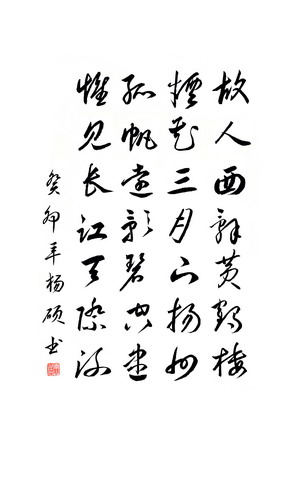 故人西辞黄鹤楼
烟花三月下扬州
孤帆远影碧空尽
惟见长江天际流
癸卯年杨硕书